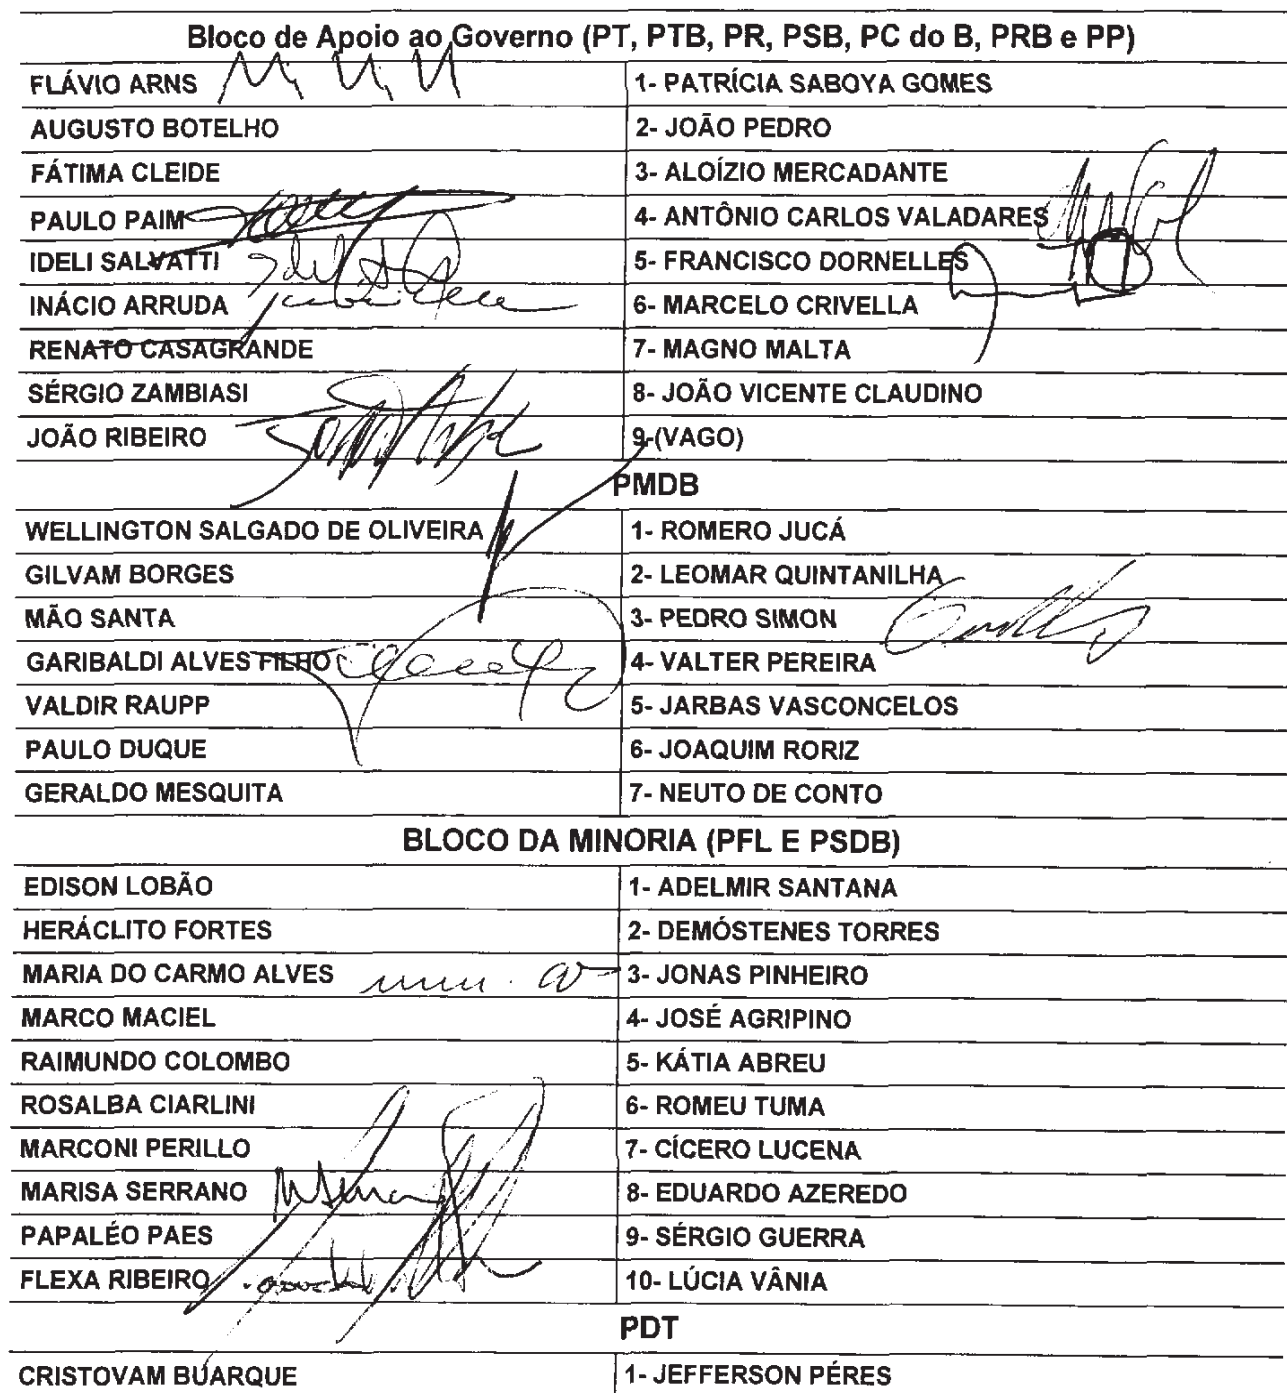 Bloco de Apoio ao Governo (PT, PTB, PR, PSB, PC do B, PRB e PP)
FLÁVIO ARNS 1- PATRÍCIA SABOYA GOMES
AUGUSTO BOTELHO 2- JOÃO PEDRO
FÁTIMA CLEIDE 3- ALOÍZIO MERCADANTE
PAULO PAIM 4- ANTÔNIO CARLOS VALADARES
IDELI SALVATTI 5- FRANCISCO DORNELLES
INÁCIO ARRUDA 6- MARCELO CRIVELLA
RENATO CASAGRANDE 7- MAGNO MALTA
SÉRGIO ZAMBIASI 8- JOÃO VICENTE CLAUDINO
JOÃO RIBEIRO 9-(VAGO)
PMDB
WELLINGTON SALGADO DE OLIVEIRA 1- ROMERO JUCÁ
GILVAM BORGES 2- LEOMAR QUINTANILHA
MÃO SANTA 3- PEDRO SIMON
GARIBALDI ALVES FILHO 4- VALTER PEREIRA
VALDIR RAUPP 5- JARBAS VASCONCELOS
PAULO DUQUE 6- JOAQUIM RORIZ
GERALDO MESQUITA 7- NEUTO DE CONTO
BLOCO DA MINORIA (PFL E PSDB)
EDISON LOBÃO 1- ADELMIR SANTANA
HERÁCLITO FORTES 2- DEMÓSTENES TORRES
MARIA DO CARMO ALVES 3- JONAS PINHEIRO
MARCO MACIEL 4- JOSÉ AGRIPINO
RAIMUNDO COLOMBO 5- KÁTIA ABREU
ROSALBA CIARLINI 6- ROMEU TUMA
MARCONI PERILLO 7- CÍCERO LUCENA
MARISA SERRANO 8- EDUARDO AZEREDO
PAPALÉO PAES 9- SÉRGIO GUERRA
FLEXA RIBEIRO 10- LÚCIA VÂNIA
PDT
CRISTOVAM BUARQUE 1- JEFFERSON PÉRES